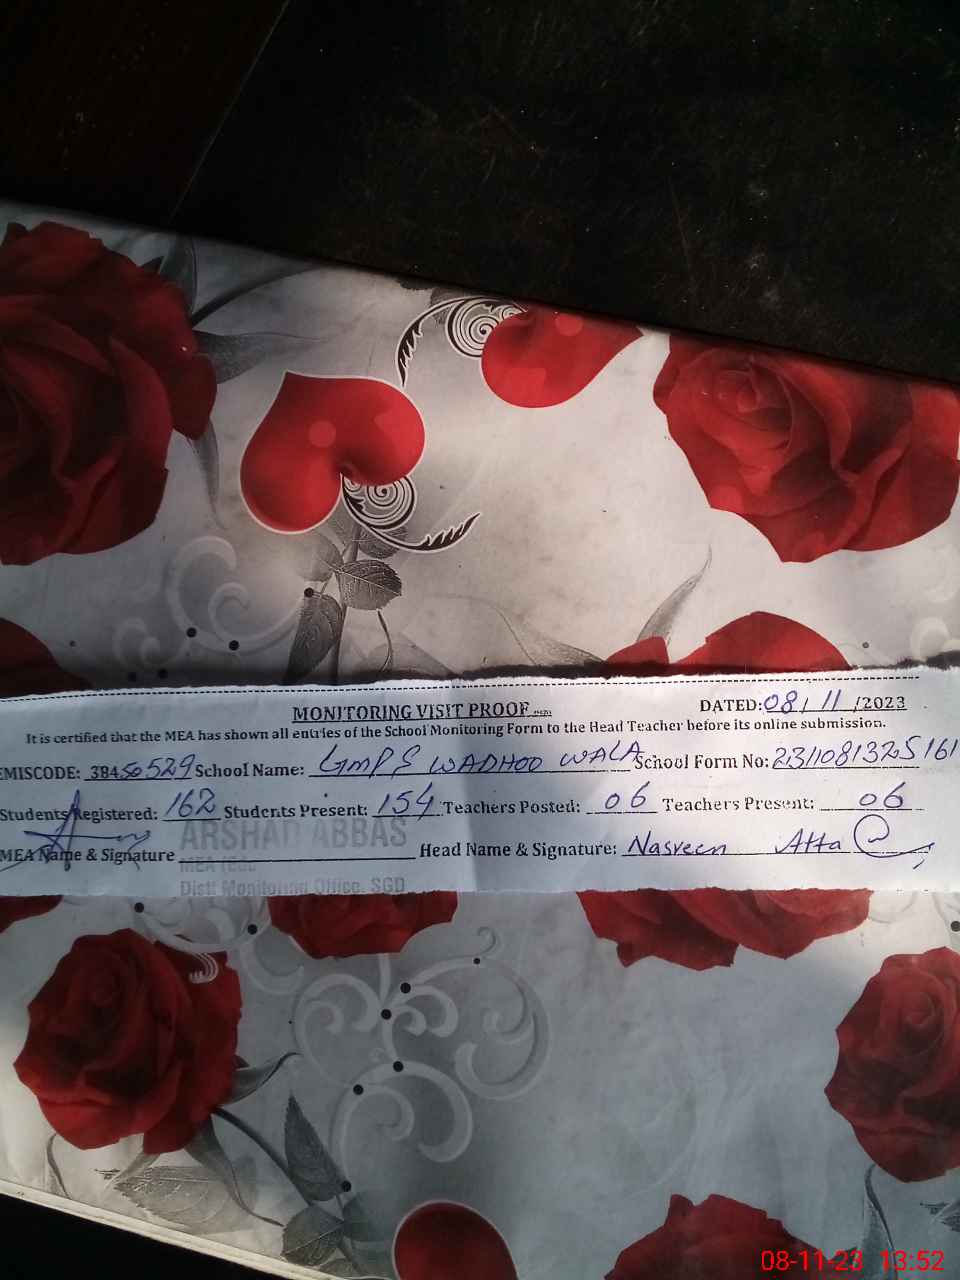 MONITORING VISIT PROOF DATED: 08/11/2023
It is certified that the MEA has shown all entries of the School Monitoring Form to the Head Teacher before its online submission.
EMISCODE: 38450529 School Name: GMPS WADHOO WALA School Form No: 2311081325161
Students Registered: 162 Students Present: 154 Teachers Posted: 06 Teachers Present: 06
ARSHAD ABBAS
MEA Name & Signature Head Name & Signature: Nasreen Atta
MEA
Distt Monitoring Office. SGD
08-11-23 13:52